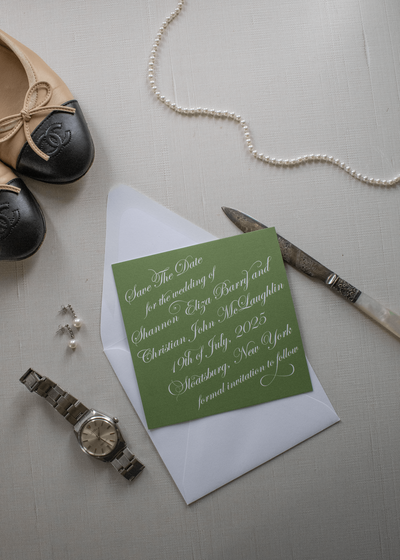 Save The Date
for the wedding of
Shannon Eliza Barry and
Christian John McLaughlin
19th of July, 2025
Sloatsburg, New York
formal invitation to follow